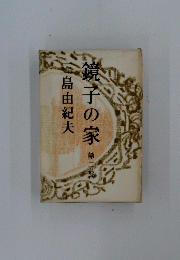 鏡子の家
第一部
三島由紀夫